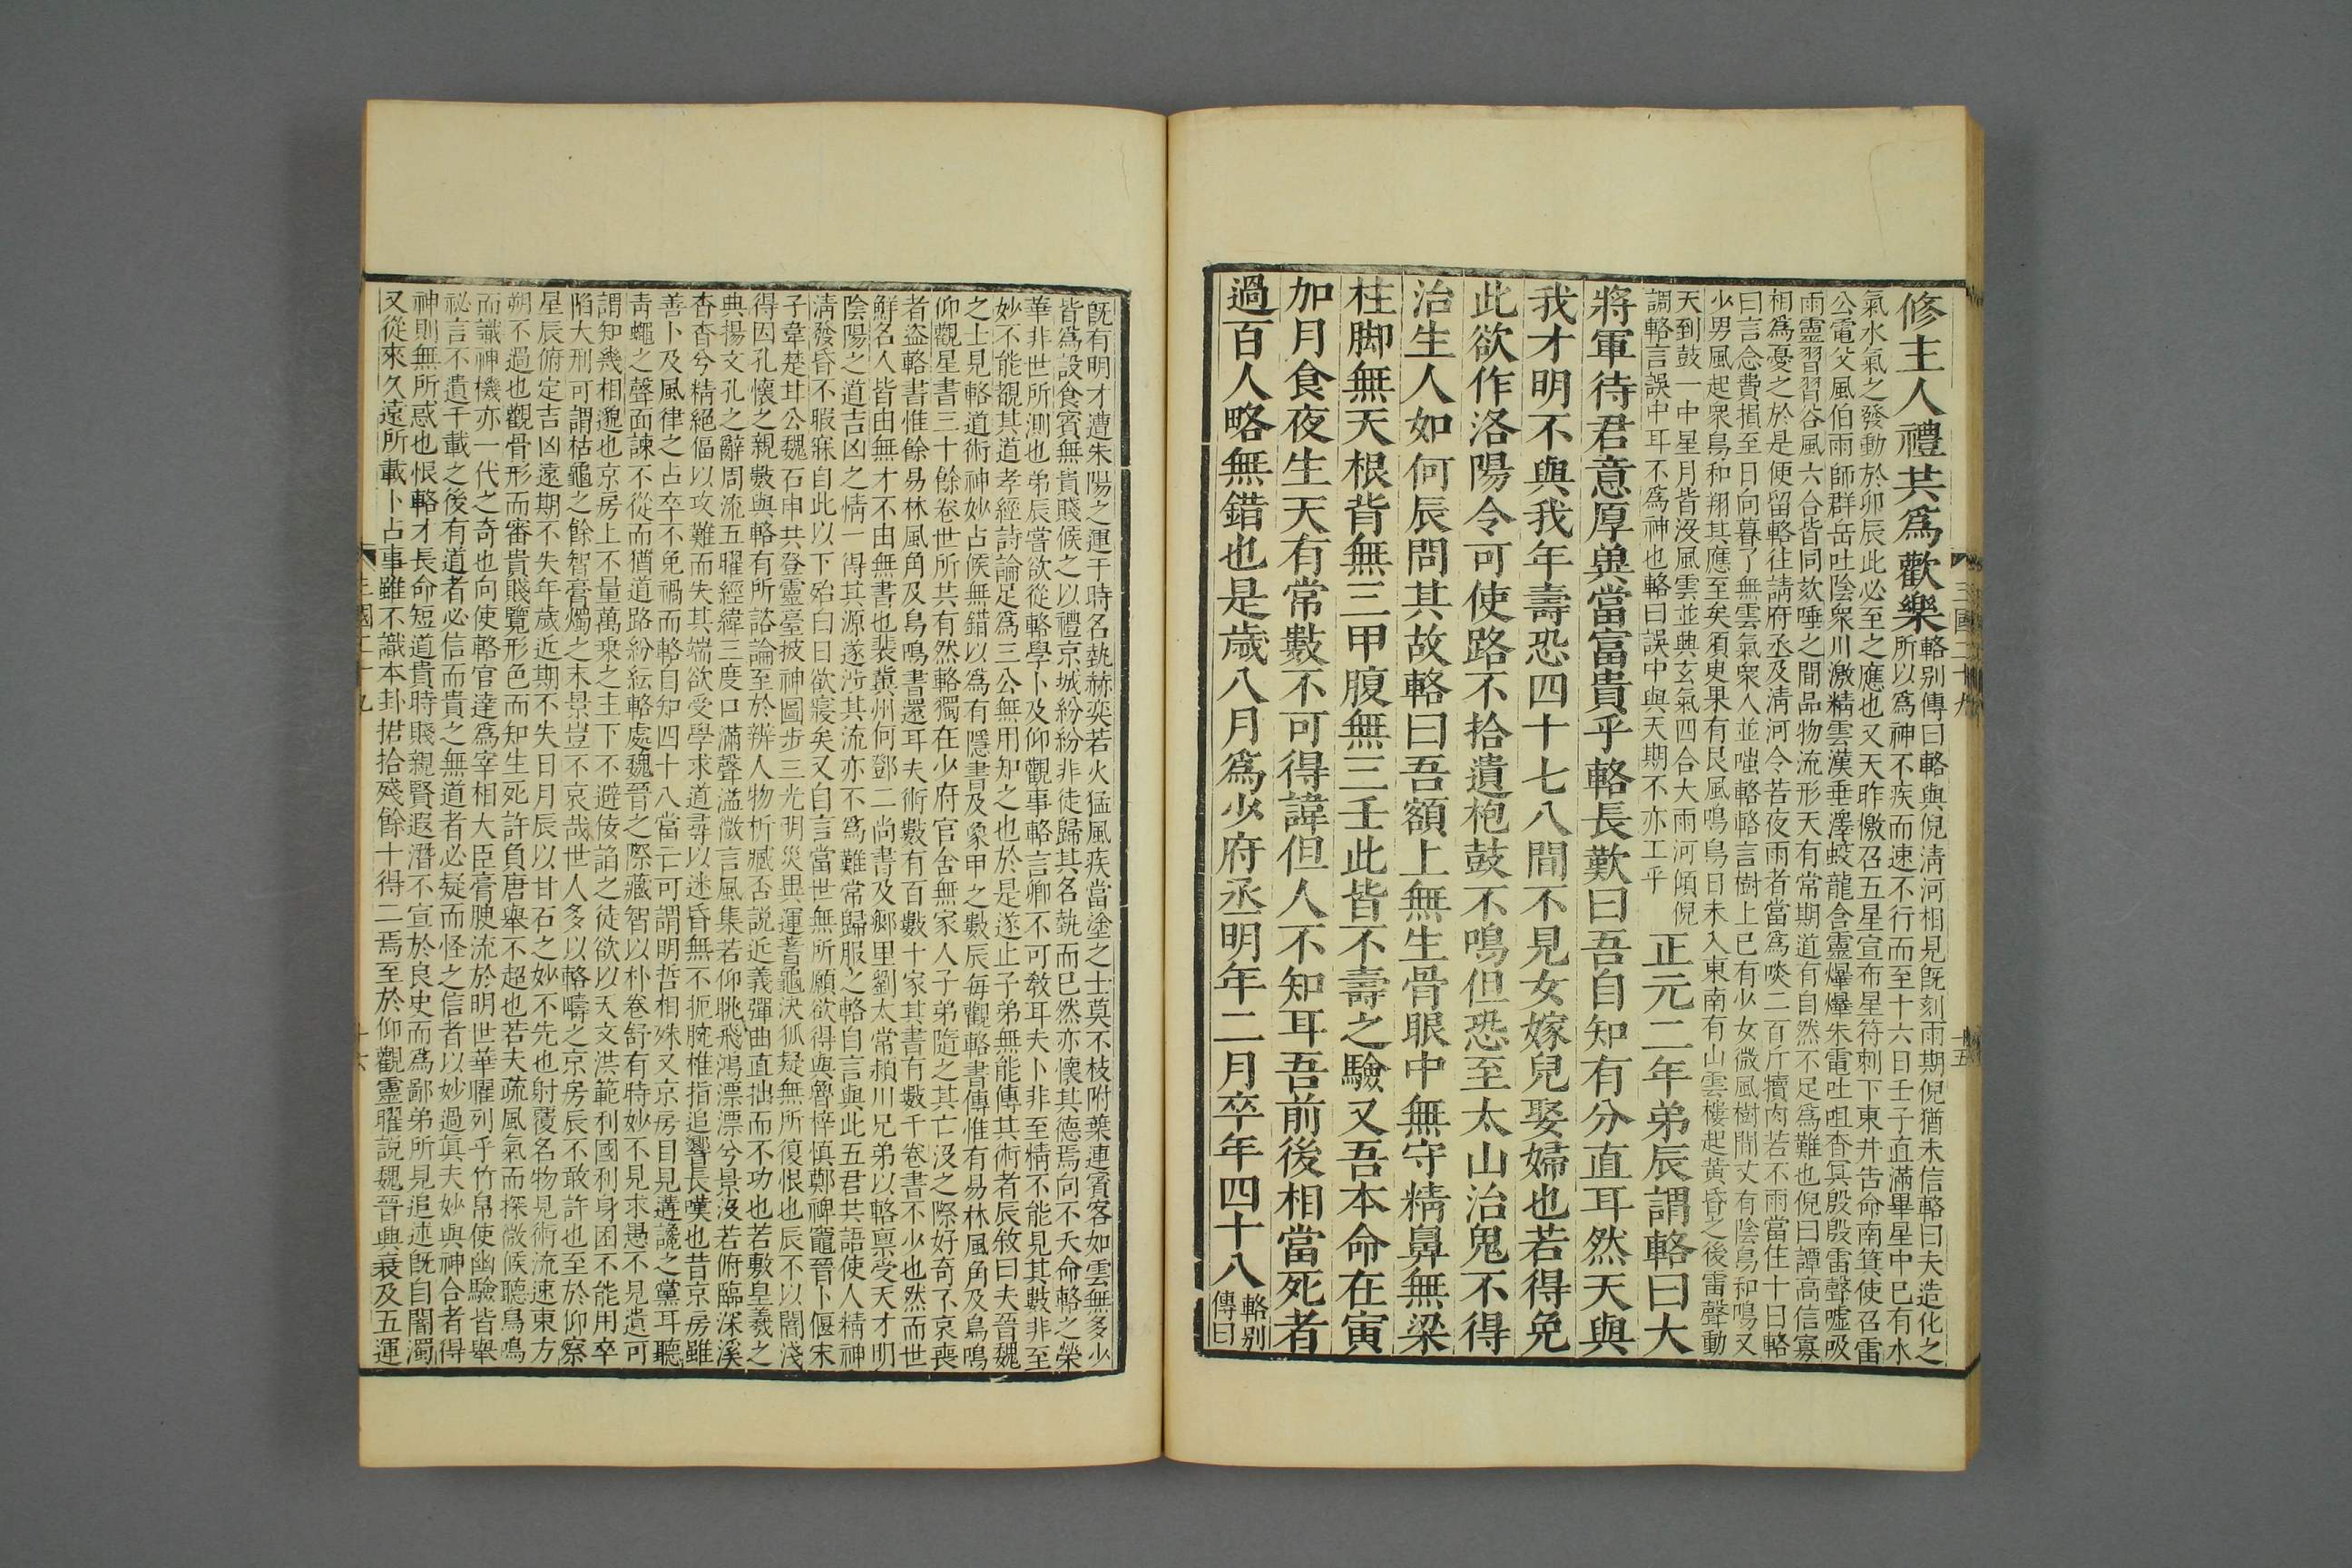 三國二十九
十五
修主人禮共爲歡樂
輅别傳曰輅與倪淸河相見旣刻雨期倪猶未信輅曰夫造化之
所以爲神不疾而速不行而至十六日壬子直滿畢星中已有水
氣水氣之發動於卯辰此必至之應也又天昨檄召五星宣布星符刺下東井告命南箕使召雷
公電父風伯雨師群岳吐陰衆川激精雲漢垂澤蛟龍含靈爆爆朱電吐咀杳冥殷殷雷聲噓吸
雨靈習習谷風六合皆同欬唾之間品物流形天有常期道有自然不足爲難也倪曰譚高信寡
相爲憂之於是便留輅往請府丞及淸河令若夜雨者當爲啖二百斤犢肉若不雨當住十日輅
曰言念費損至日向暮了無雲氣衆人並嗤輅輅言樹上已有少女微風樹間又有陰鳥和鳴又
少男風起衆鳥和翔其應至矣須臾果有艮風鳴鳥日未入東南有山雲樓起黃昏之後雷聲動
天到鼓一中星月皆沒風雲並興玄氣四合大雨河傾倪
調輅言誤中耳不爲神也輅曰誤中與天期不亦工乎
正元二年弟辰謂輅曰大
將軍待君意厚兾當富貴乎輅長歎曰吾自知有分直耳然天與
我才明不與我年壽恐四十七八間不見女嫁兒娶婦也若得免
此欲作洛陽令可使路不拾遺枹鼓不鳴但恐至太山治鬼不得
治生人如何辰問其故輅曰吾額上無生骨眼中無守精鼻無梁
柱脚無天根背無三甲腹無三壬此皆不壽之驗又吾本命在寅
加月食夜生天有常數不可得諱但人不知耳吾前後相當死者
過百人略無錯也是歲八月爲少府丞明年二月卒年四十八
輅别
傳曰
旣有明才遭朱陽之運于時名埶赫奕若火猛風疾當塗之士莫不枝附葉連賓客如雲無多少
皆爲設食賓無貴賤候之以禮京城紛紛非徒歸其名埶而已然亦懷其德焉向不夭命輅之榮
華非世所測也弟辰嘗欲從輅學卜及仰觀事輅言卿不可敎耳夫卜非至精不能見其數非至
妙不能覩其道孝經詩論足爲三公無用知之也於是遂止子弟無能傳其術者辰敘曰夫晉魏
之士見輅道術神妙占候無錯以爲有隱書及象甲之數辰每觀輅書傳惟有易林風角及鳥鳴
仰觀星書三十餘卷世所共有然輅獨在少府官舍無家人子弟隨之其亡沒之際好奇不哀喪
者盜輅書惟餘易林風角及鳥鳴書還耳夫術數有百數十家其書有數千卷書不少也然而世
鮮名人皆由無才不由無書也裴兾州何鄧二尚書及鄉里劉太常頴川兄弟以輅禀受天才明
陰陽之道吉凶之情一得其源遂涉其流亦不爲難常歸服之輅自言與此五君共語使人精神
淸發昏不暇寐自此以下殆白日欲寢矣又自言當世無所願欲得與魯梓慎鄭裨竈晉卜偃宋
子韋楚甘公魏石申共登靈臺披神圖步三光明災異運蓍龜决狐疑無所復恨也辰不以闇淺
得因孔懷之親數與輅有所諮論至於辨人物析臧否説近義彈曲直拙而不功也若敷皇羲之
典揚文孔之辭周流五曜經緯三度口滿聲溢微言風集若仰眺飛鴻漂漂兮景沒若俯臨深溪
杳杳兮精絕偪以攻難而失其端欲受學求道尋以迷昏無不扼腕椎指追響長嘆也昔京房雖
善卜及風律之占卒不免禍而輅自知四十八當亡可謂明哲相殊又京房目見遘讒之黨耳聽
靑蠅之聲面諫不從而猶道路紛紜輅處魏晉之際藏智以朴卷舒有時妙不見求愚不見遺可
謂知幾相邈也京房上不量萬乘之主下不避佞諂之徒欲以天文洪範利國利身困不能用卒
陷大刑可謂枯龜之餘智膏燭之末景豈不哀哉世人多以輅疇之京房辰不敢許也至於仰察
星辰俯定吉凶遠期不失年歲近期不失日月辰以甘石之妙不先也射覆名物見術流速東方
朔不過也觀骨形而審貴賤覽形色而知生死許負唐舉不超也若夫疏風氣而探微候聽鳥鳴
而識神機亦一代之奇也向使輅官達爲宰相大臣膏腴流於明世華曜列乎竹帛使幽驗皆舉
祕言不遺千載之後有道者必信而貴之無道者必疑而怪之信者以妙過眞夫妙與神合者得
神則無所惑也恨輅才長命短道貴時賤親賢遐潛不宣於良史而爲鄙弟所見追述旣自闇濁
又從來久遠所載卜占事雖不識本卦捃拾殘餘十得二焉至於仰觀靈曜説魏晉興衰及五運
三國二十九
十六